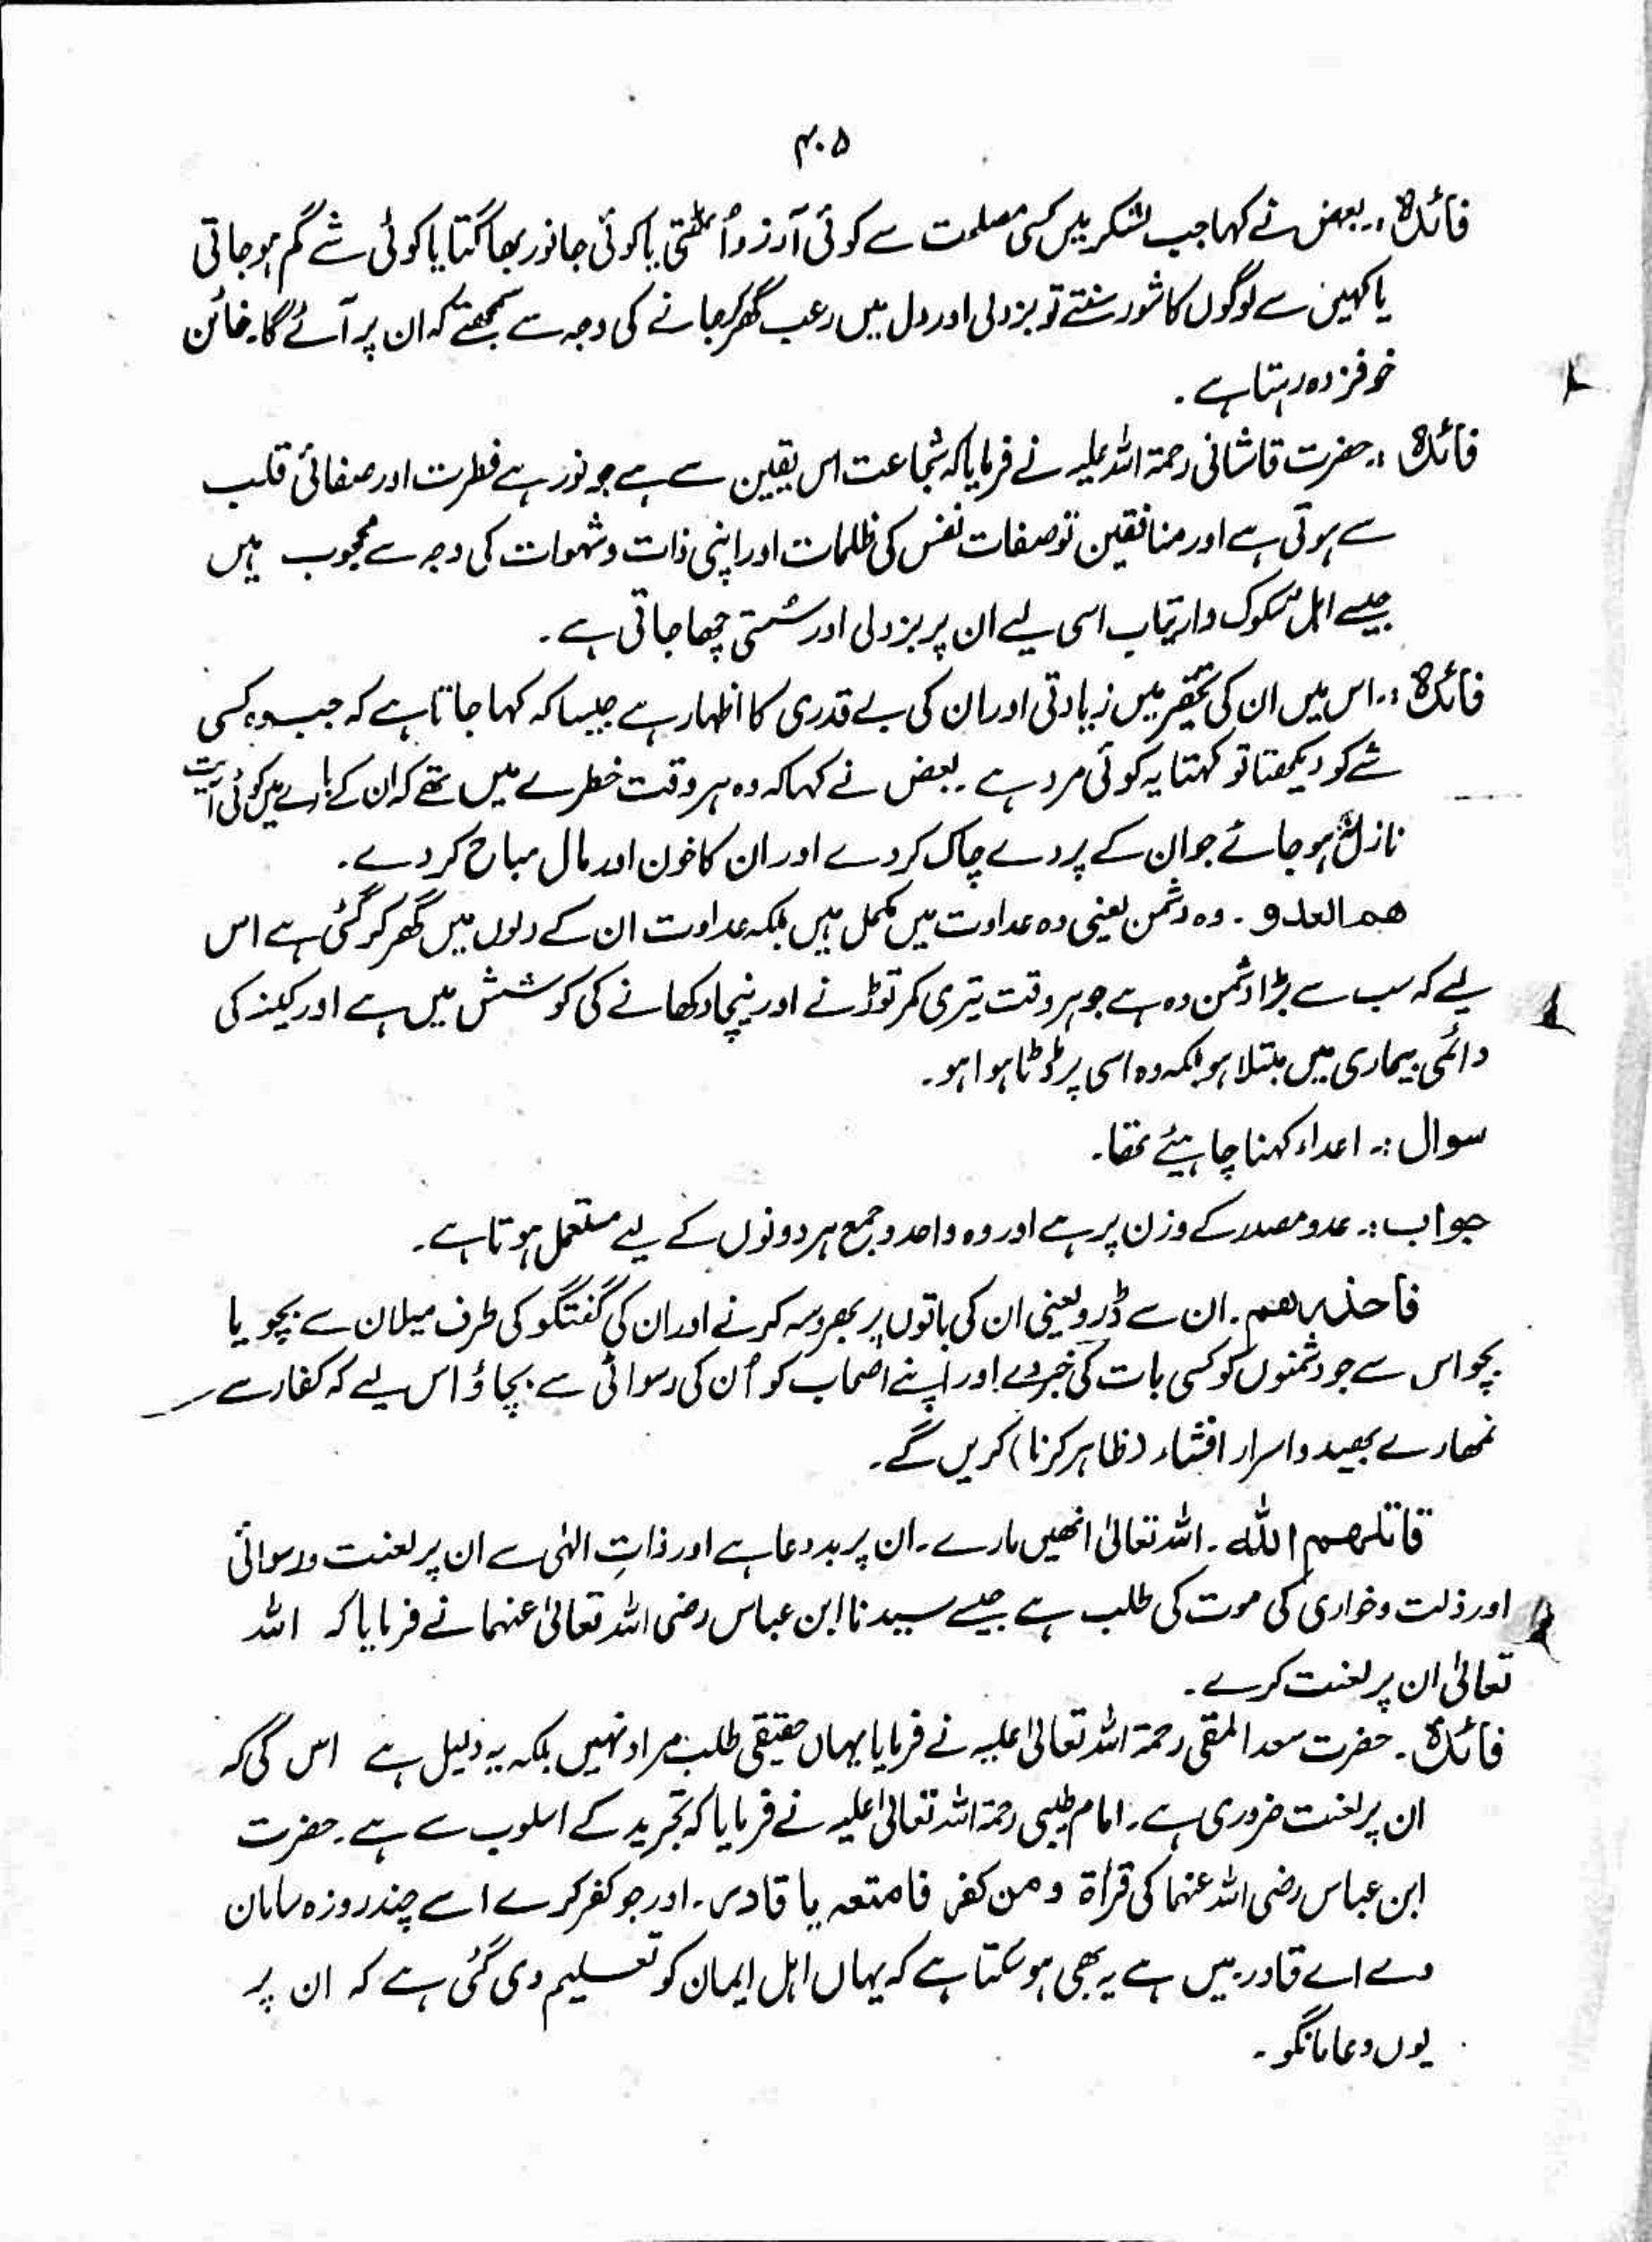 ۴۰۵
فائدہ :۔ بعض نے کہا جب لشکر میں کسی مصلحت سے کوئی آرزو اُٹھتی یا کوئی جانور بھاگتا یا کوئی شے گم ہو جاتی
یا کہیں سے لوگوں کا شور سنتے تو بزدلی اور دل میں رعب گھر کر جانے کی وجہ سے سمجھتے کہ ان پر آئے گا۔ خائن
خوفزدہ رہتا ہے ۔
فائدہ :۔ حضرت قاشانی رحمۃ اللہ علیہ نے فرمایا کہ شجاعت اس یقین سے ہے جو نور ہے فطرت اور صفائی قلب
سے ہوتی ہے اور منافقین تو صفات نفس کی ظلمات اور اپنی ذات و شہوات کی وجہ سے محجوب ہیں
جیسے اہل شکوک و ارتیاب اسی لیے ان پر بزدلی اور سُستی چھا جاتی ہے ۔
فائدہ :۔ اس میں ان کی تحقیر میں زیادتی اور ان کی بے قدری کا اظہار ہے جیسا کہ کہا جاتا ہے کہ جب وہ کسی
شے کو دیکھتا تو کہتا یہ کوئی مرد ہے ۔ بعض نے کہا کہ وہ ہر وقت خطرے میں تھے کہ ان کے بارے میں کوئی آیت
نازل ہو جائے جو ان کے پردے چاک کر دے اور ان کا خون اور مال مباح کر دے ۔
ھم العدو ۔ وہ دشمن یعنی وہ عداوت میں مکمل ہیں بلکہ عداوت ان کے دلوں میں گھر کر گئی ہے اس
لیے کہ سب سے بڑا دشمن وہ ہے جو ہر وقت تیری کمر توڑنے اور نیچا دکھانے کی کوشش میں ہے اور کینہ کی
دائمی بیماری میں مبتلا ہو بلکہ وہ اسی پر ڈٹا ہوا ہو ۔
سوال :۔ اعداء کہنا چاہیئے تھا ۔
جواب :۔ عدو مصدر کے وزن پر ہے اور وہ واحد و جمع ہر دونوں کے لیے مستعمل ہوتا ہے ۔
فاحذرھم ۔ ان سے ڈرو یعنی ان کی باتوں پر بھروسہ کرنے اور ان کی گفتگو کی طرف میلان سے بچو یا
بچو اس سے جو دشمنوں کو کسی بات کی خبر دے اور اپنے اصحاب کو اُن کی رسوائی سے بچاؤ اس لیے کہ کفار سے
تمھارے بھید و اسرار افشاء (ظاہر کرنا) کریں گے ۔
قاتلھم اللہ ۔ اللہ تعالیٰ انھیں مارے ۔ ان پر بددعا ہے اور ذاتِ الٰہی سے ان پر لعنت و رسوائی
اور ذلت و خواری کی موت کی طلب ہے جیسے سیدنا ابن عباس رضی اللہ تعالیٰ عنہما نے فرمایا کہ اللہ
تعالیٰ ان پر لعنت کرے ۔
فائدہ ۔ حضرت سعد المفتی رحمۃ اللہ تعالیٰ علیہ نے فرمایا یہاں حقیقی طلب مراد نہیں بلکہ یہ دلیل ہے اس کی کہ
ان پر لعنت ضروری ہے ۔ امام طیبی رحمۃ اللہ تعالیٰ علیہ نے فرمایا کہ تجرید کے اسلوب سے ہے ۔ حضرت
ابن عباس رضی اللہ عنہما کی قرأۃ ومن کفر فامتعہ یا قادر ۔ اور جو کفر کرے اسے چند روزہ سامان
دے اے قادر میں ہے یہ بھی ہو سکتا ہے کہ یہاں اہل ایمان کو تعلیم دی گئی ہے کہ ان پر
یوں دعا مانگو ۔